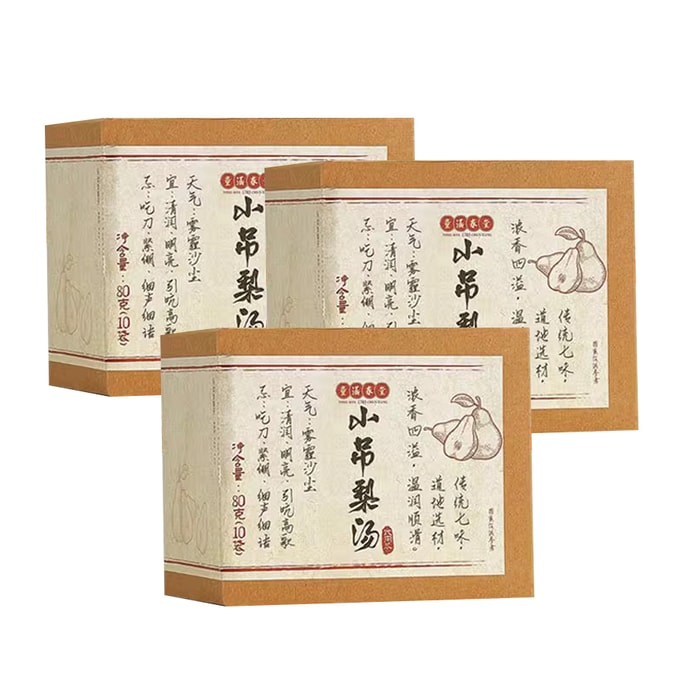 董滿春堂
小吊梨汤
天气：雾霾沙尘
宜：清润·明亮·引吭高歌
忌：吃刀·紧绷·细声细语
净含量：80克(10袋)
董滿春堂
小吊梨汤
浓香四溢，温
传统七味，
道地选材，
天气：雾霾沙尘
宜：清润·明亮·引吭高歌
忌：吃刀·紧绷·细声细语
净含量：
董滿春堂
小吊梨汤
浓香四溢，温润顺滑。
传统七味，
道地选材，
天气：雾霾沙尘
宜：清润·明亮·引吭高歌
忌：吃刀·紧绷·细声细语
净含量：80克(10袋)